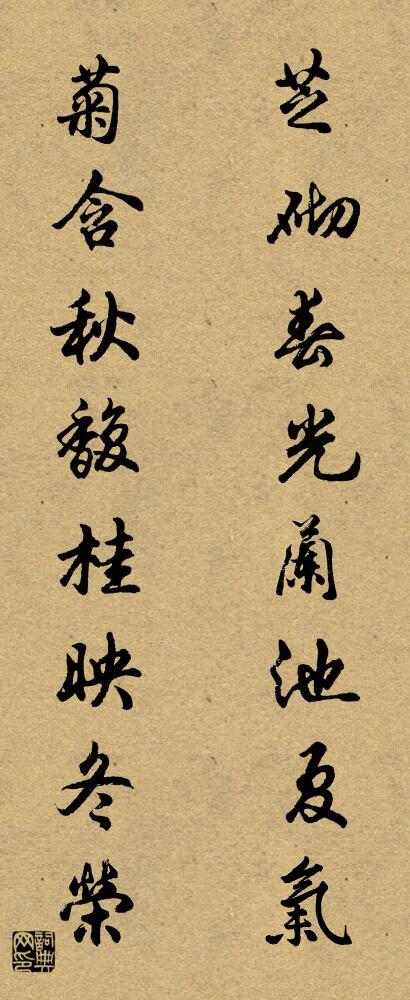 芝砌春光蘭池夏氣
菊含秋馥桂映冬榮
詞典网印